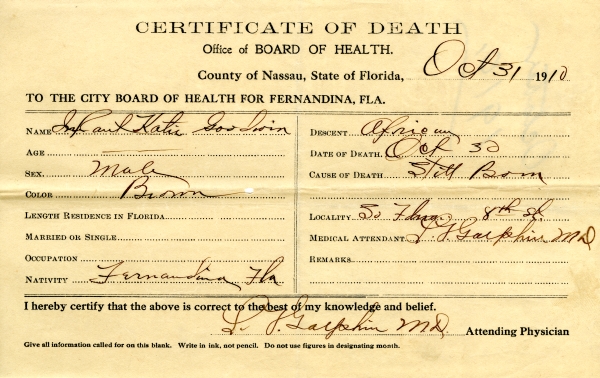 CERTIFICATE OF DEATH
Office of BOARD OF HEALTH.
County of Nassau, State of Florida, Oct 31 1910
TO THE CITY BOARD OF HEALTH FOR FERNANDINA, FLA.
NAME Infant Katie Goodwin
AGE
SEX. Male
COLOR Brown
LENGTH RESIDENCE IN FLORIDA
MARRIED OR SINGLE
OCCUPATION
NATIVITY Fernandina Fla
DESCENT African
DATE OF DEATH. Oct 30
CAUSE OF DEATH Still Born
LOCALITY So 8th St.
MEDICAL ATTENDANT Galphin MD
REMARKS
I hereby certify that the above is correct to the best of my knowledge and belief.
Galphin MD, Attending Physician
Give all information called for on this blank. Write in ink, not pencil. Do not use figures in designating month.